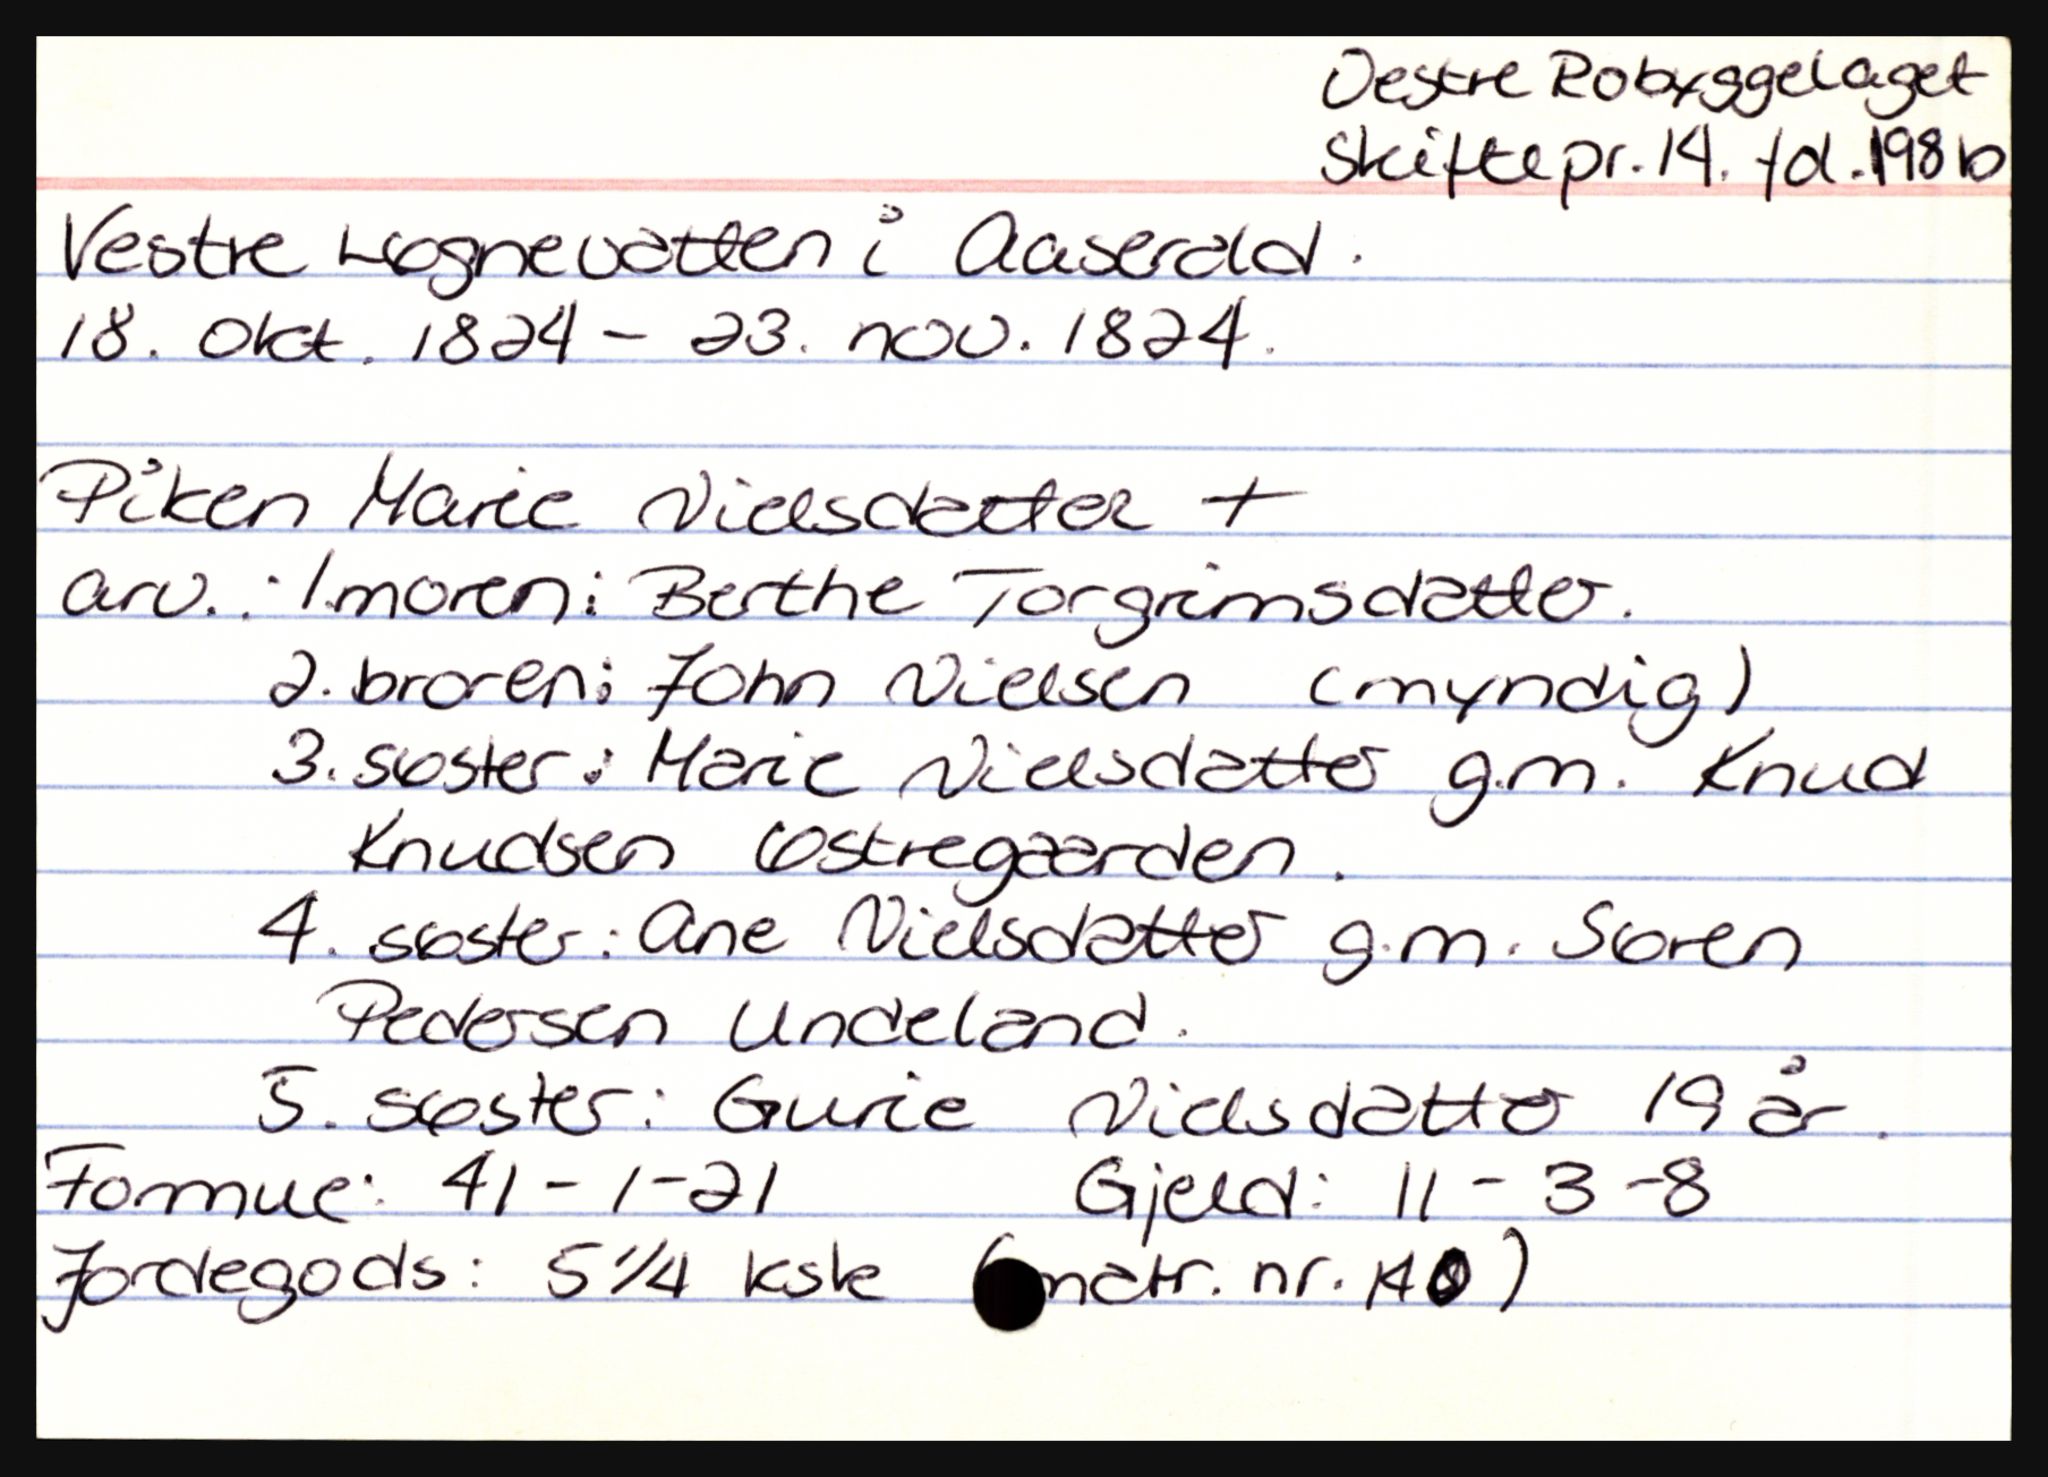 Vestre Robyggelaget
Skiftepr. 14. fol. 198 b
Vestre Løgnevatten i Aaserald.
18. Okt. 1824 - 23. nov. 1824.
Piken Marie Nielsdatter +
arv.: 1. moren: Berthe Torgrimsdatter.
2. broren: John Nielsen (myndig)
3. søster: Marie Nielsdatter g.m. Knud
Knudsen Østregaarden.
4. søster: Ane Nielsdatter g.m. Søren
Pedersen Undeland.
5. søster: Gurie Nielsdatter 19 år.
Formue: 41-1-21 Gjeld: 11-3-8
Jordegods: 5 1/4 ksk (matr. nr.